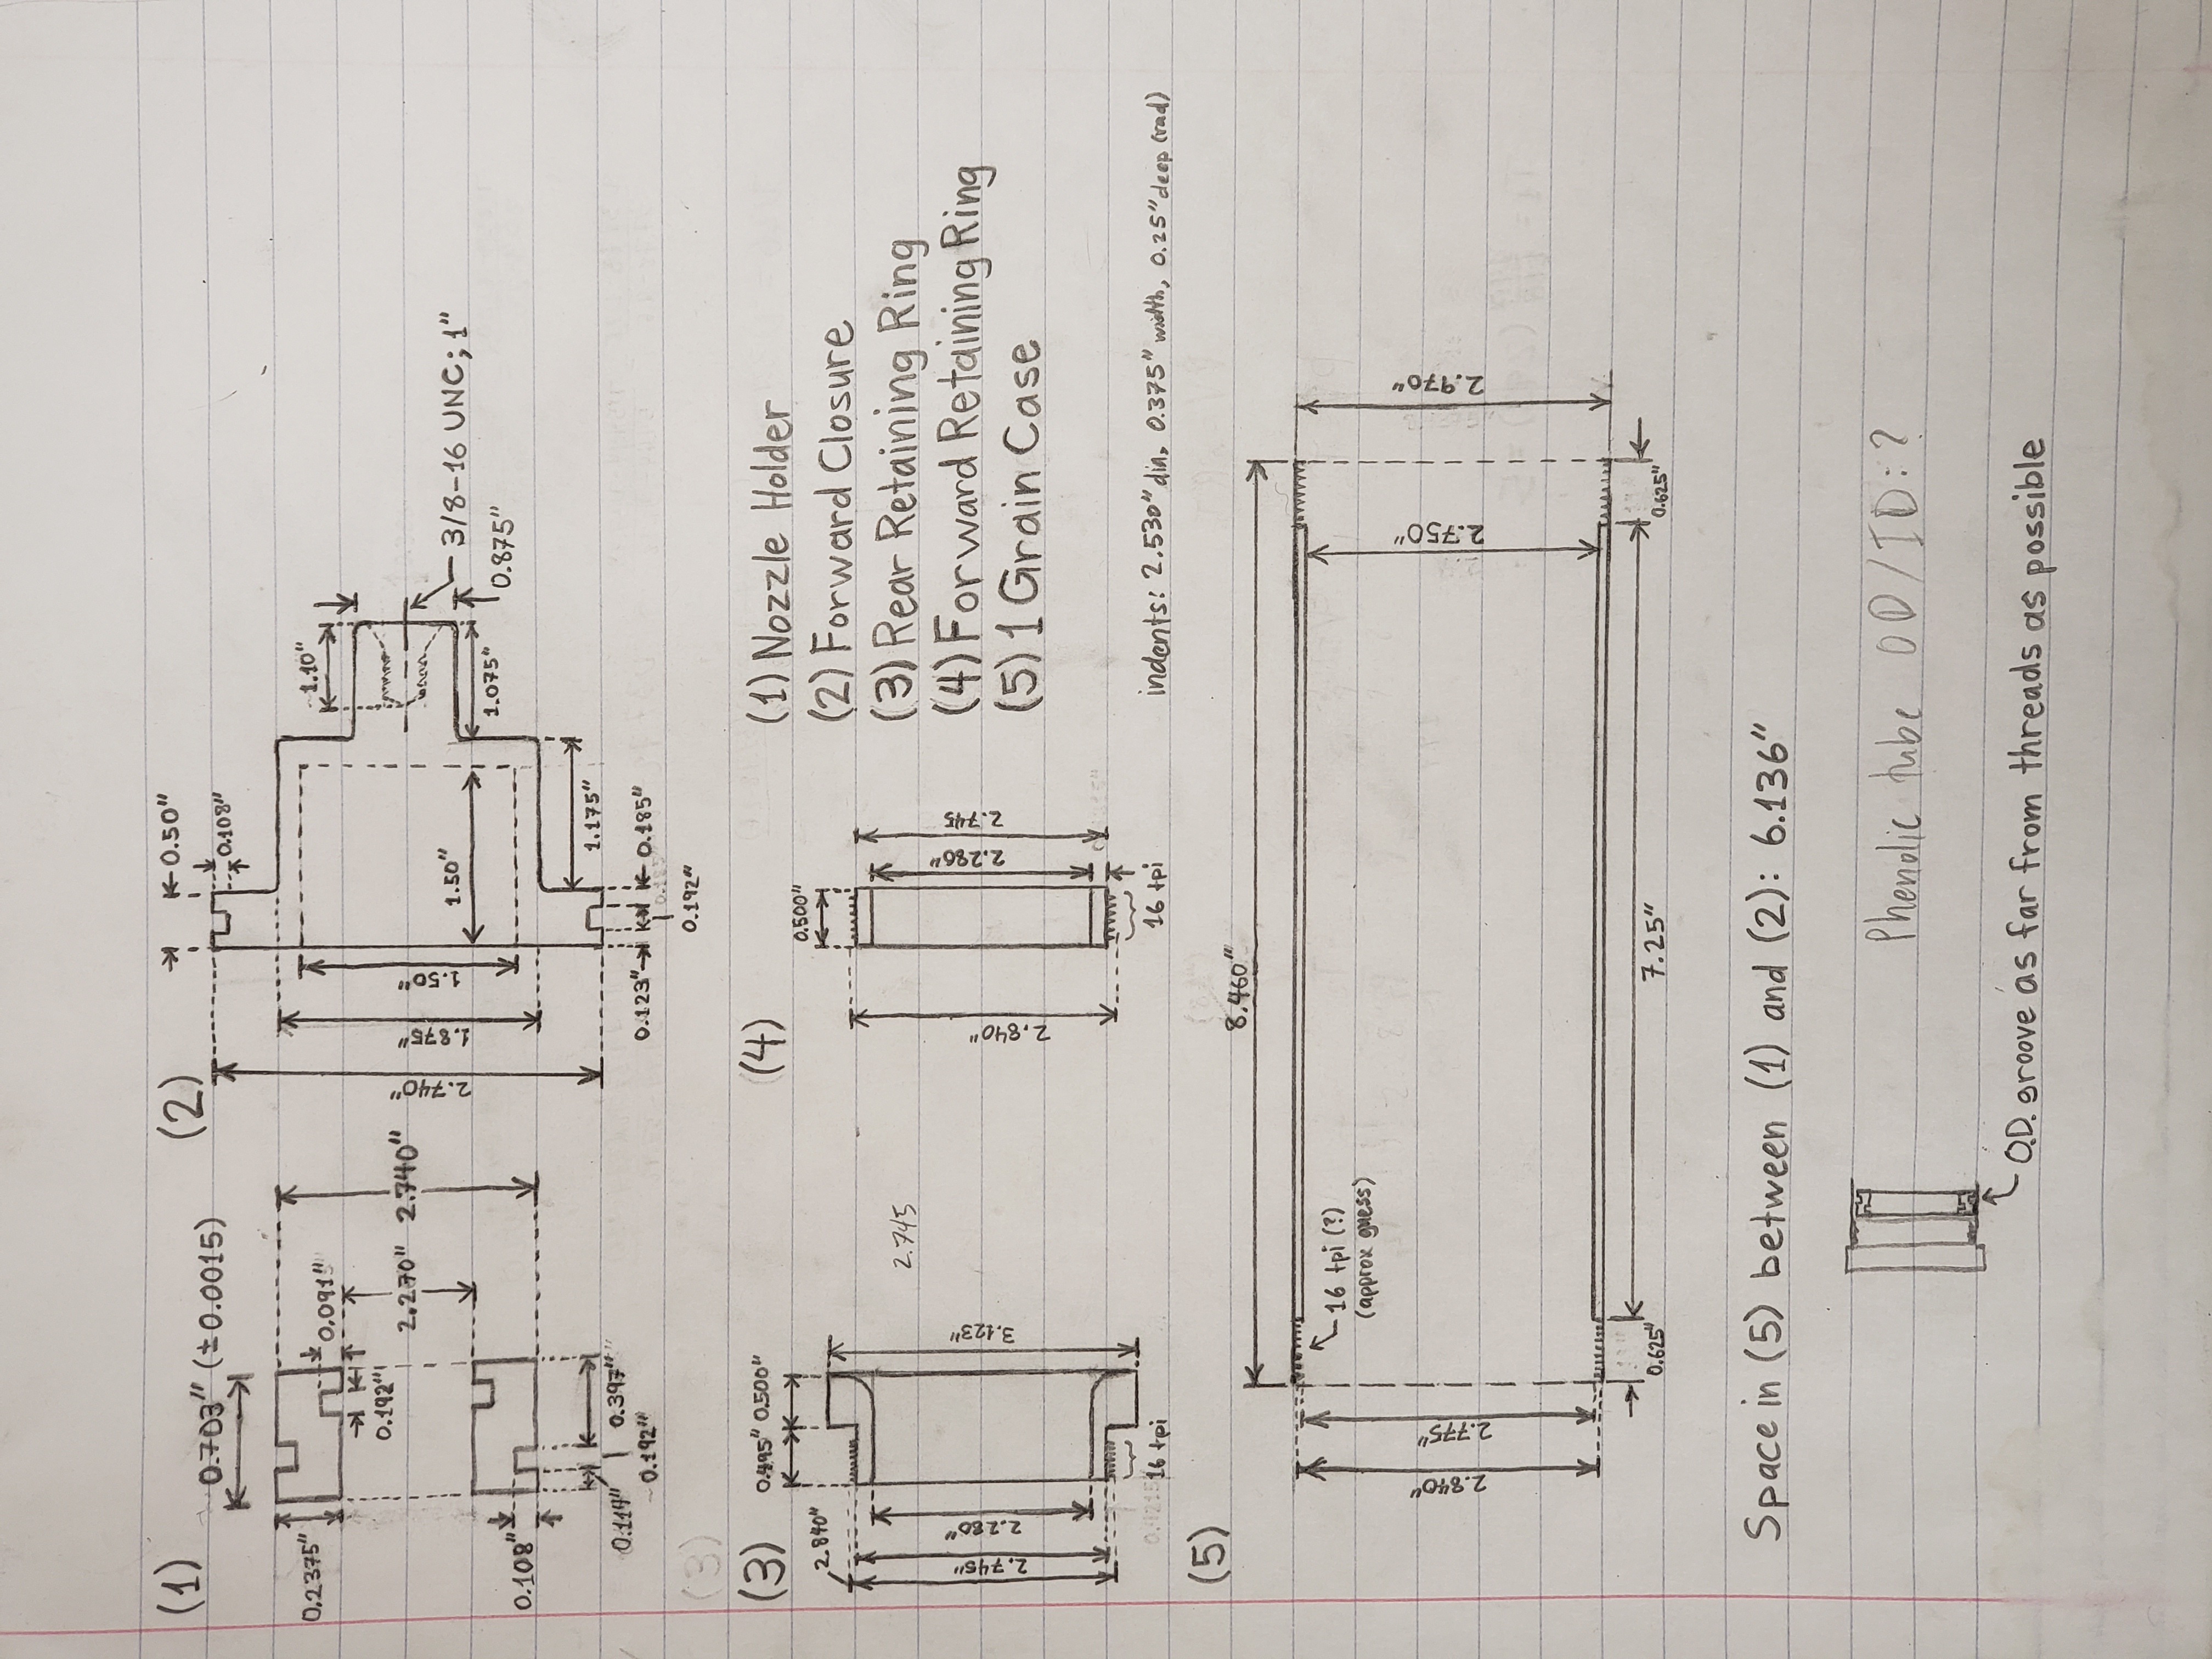 (1)
0.703" (±0.0015)
0.2375"
0.091"
0.192"
2.270"
2.740"
0.108"
0.114"
0.192"
0.397"
(2)
0.50"
0.108"
1.10"
3/8-16 UNC; 1"
0.875"
1.075"
1.50"
1.50"
1.875"
2.740"
1.175"
0.185"
0.192"
0.123"
(3)
(3)
0.495"
0.500"
2.840"
2.745"
2.280"
3.123"
16 tpi
2.745
(4)
0.500"
2.840"
2.280"
2.745
16 tpi
(1) Nozzle Holder
(2) Forward Closure
(3) Rear Retaining Ring
(4) Forward Retaining Ring
(5) 1 Grain Case
indents: 2.530" dia, 0.375" width, 0.25" deep (rad)
(5)
8.460"
2.840"
2.775"
16 tpi (?)
(approx guess)
2.750"
2.970"
0.625"
7.25"
0.625"
Space in (5) between (1) and (2): 6.136"
Phenolic tube OD/ID: ?
O.D. groove as far from threads as possible